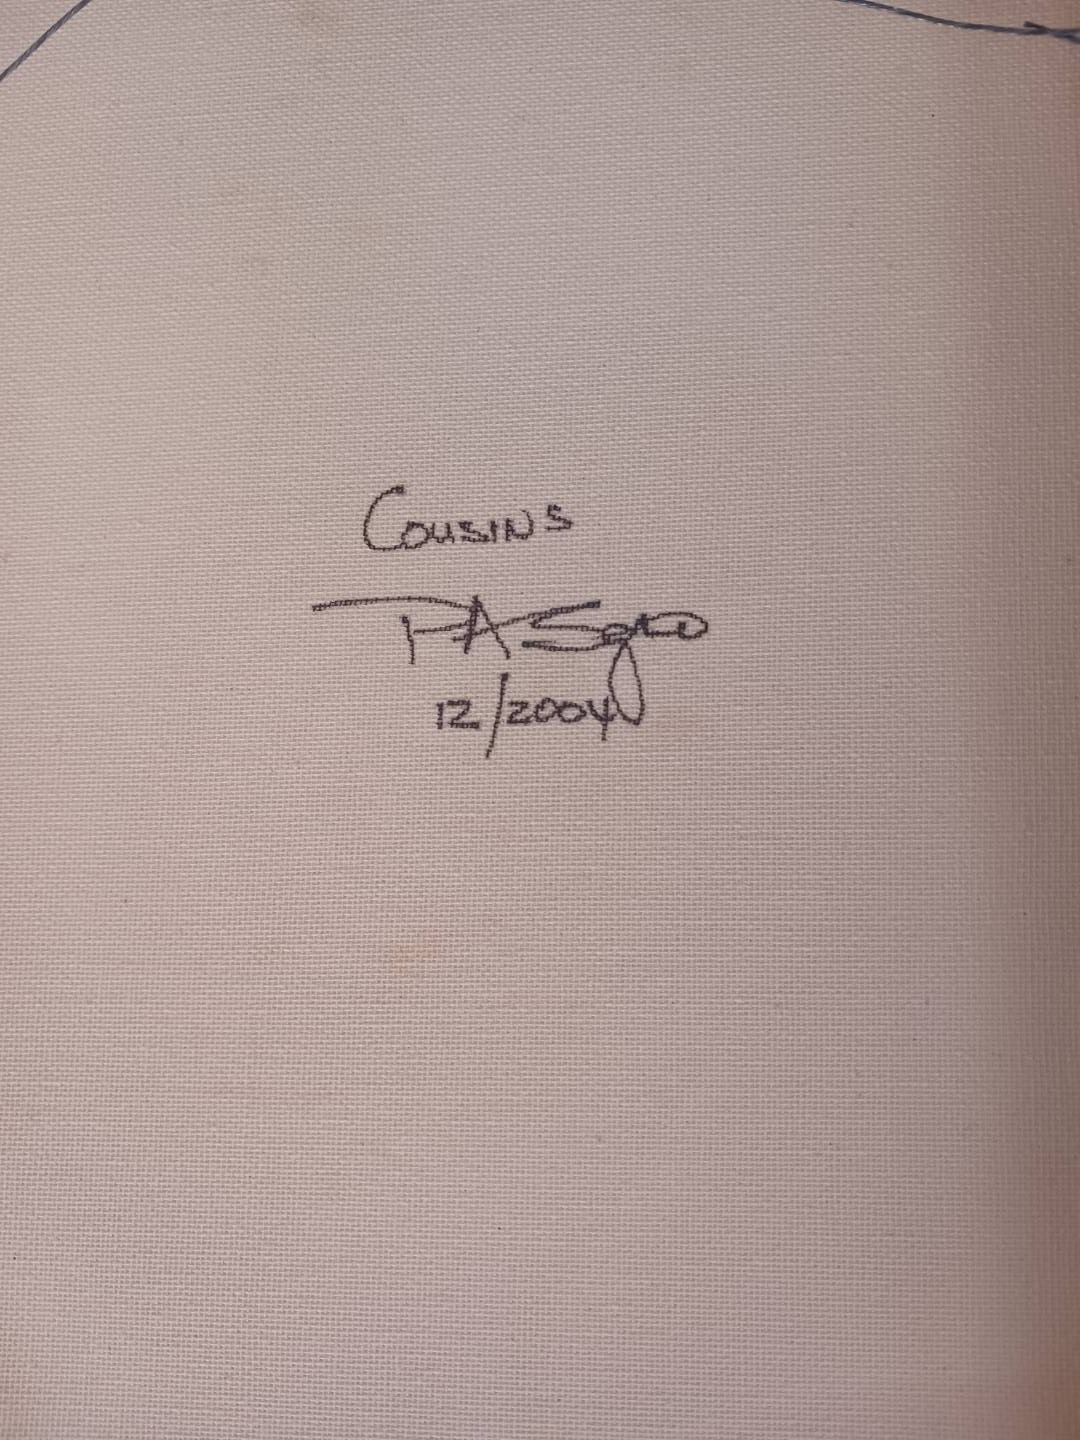 Cousins
PA Sgro
12/2004